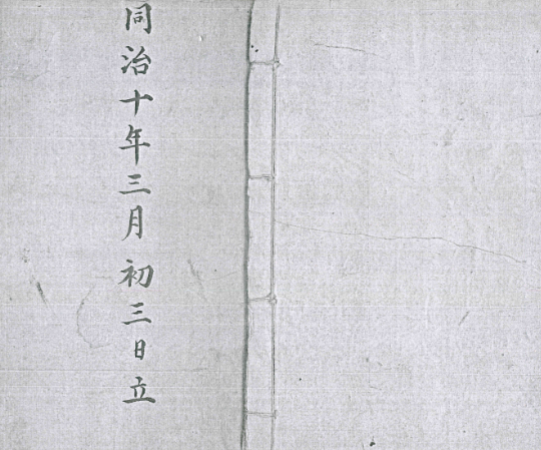 同治十年三月初三日立